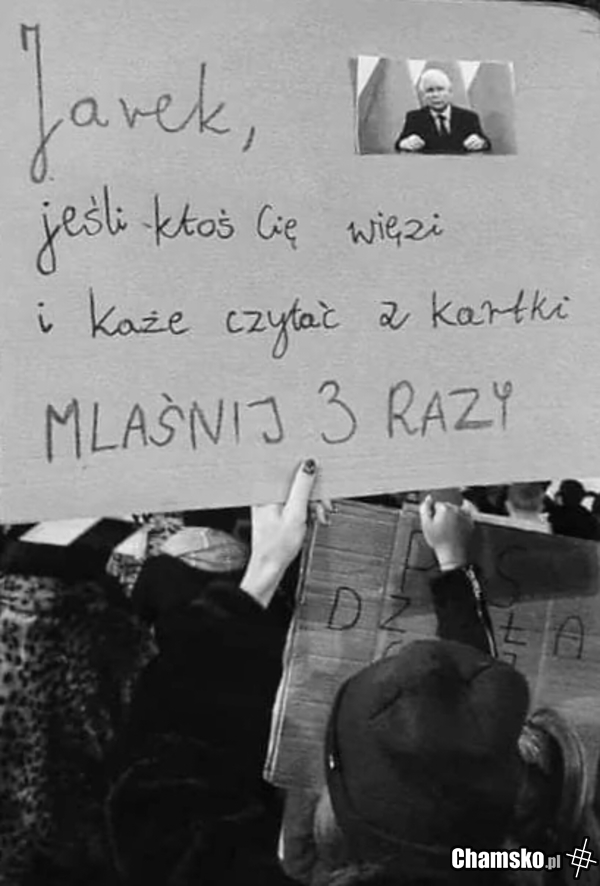 Jarek,
jeśli ktoś Cię więzi
i każe czytać z kartki
MLAŚNIJ 3 RAZY
Chamsko.pl